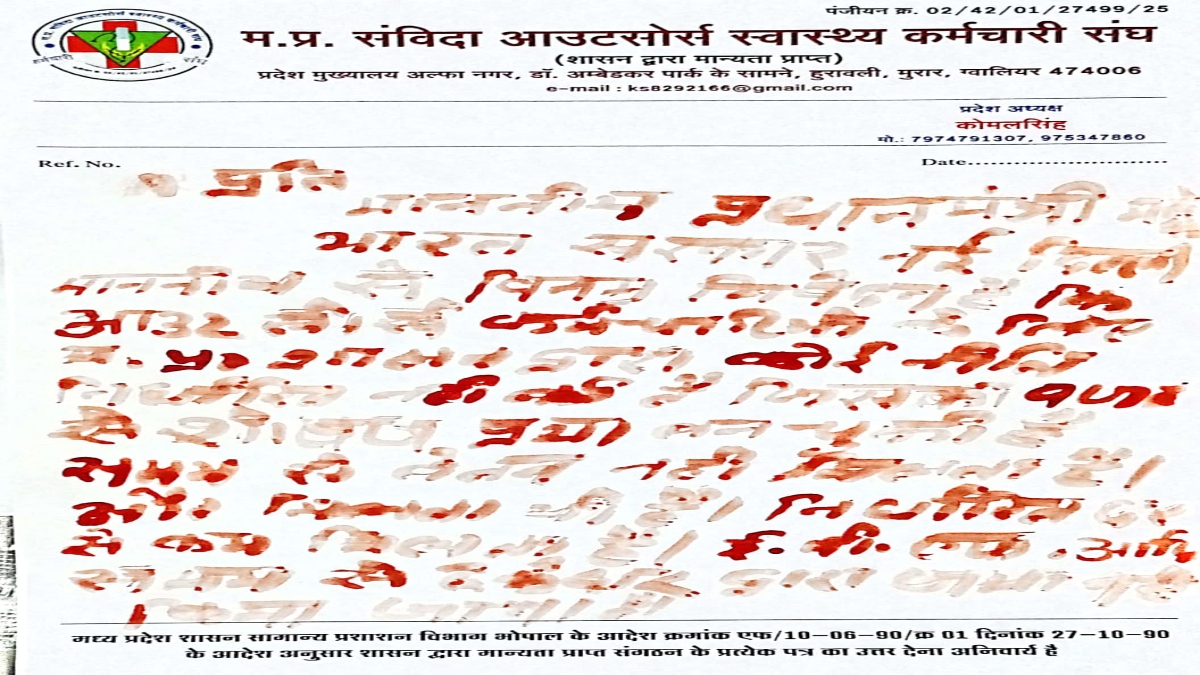 पंजीयन क्र. 02/42/01/27499/25
म.प्र. संविदा आउटसोर्स स्वास्थ्य कर्मचारी संघ
(शासन द्वारा मान्यता प्राप्त)
प्रदेश मुख्यालय अल्फा नगर, डॉ. अम्बेडकर पार्क के सामने, हुरावली, मुरार, ग्वालियर 474006
e-mail : ks8292166@gmail.com
प्रदेश अध्यक्ष
कोमलसिंह
मो.: 7974791307, 975347860
Ref. No. Date..........................
प्रति
माननीय प्रधानमंत्री
भारत सरकार नई दिल्ली
माननीय से विनम्र निवेदन है कि
आउट कर्मचारियों के लिए
कोई नीति
निर्धारित नही की गई है जिसकी वजह
से शोषण प्रथा बन चुकी है
समय से वेतन नही मिलता है।
और मिलता भी है। निर्धारित
से कम मिलता है। ई.पी. एफ. आदि
द्वारा जमा नही
किया जाता है
मध्य प्रदेश शासन सामान्य प्रशाशन विभाग भोपाल के आदेश क्रमांक एफ/10-06-90/क्र 01 दिनांक 27-10-90
के आदेश अनुसार शासन द्वारा मान्यता प्राप्त संगठन के प्रत्येक पत्र का उत्तर देना अनिवार्य है